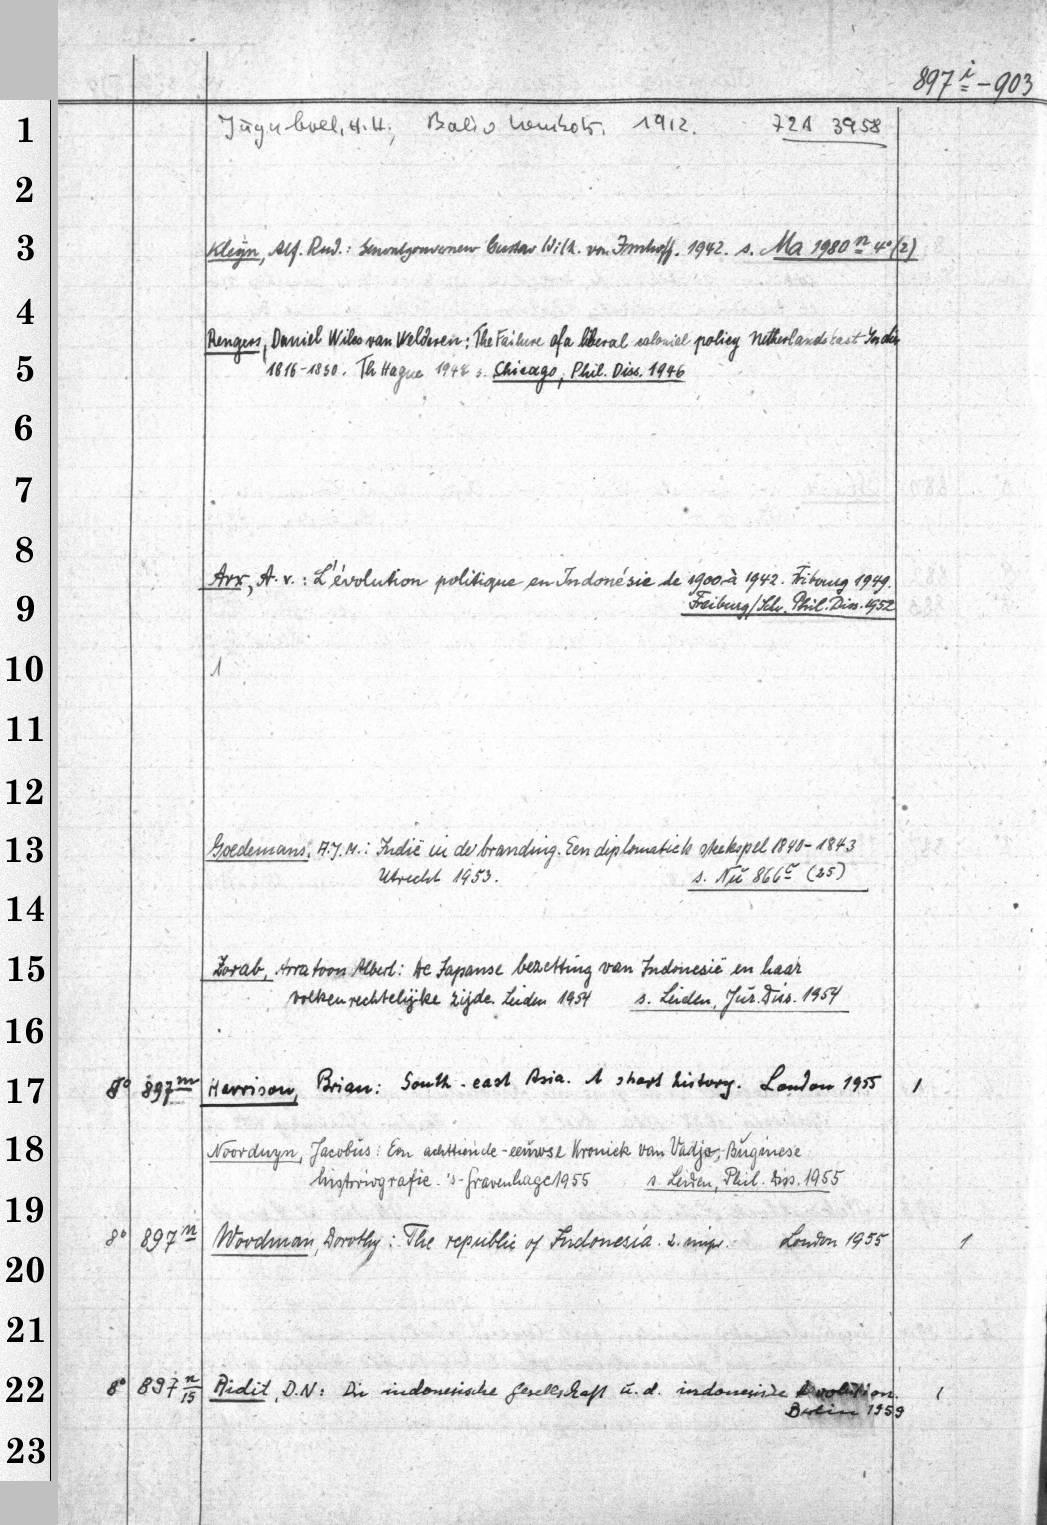 897 i - 903
1 Juynboll, H. H., Bali 1912. 721 3958
2
3 Kleijn, Alf. Rud.: Generalgouverneur Gustav Wilh. von Imhoff. 1942. s. Ma 1980 n 4° (2)
4 Rengers, Daniel Wiles van Welderen: The Failure of a liberal colonial policy Netherlands East Indies
5 1816-1830. Th Hague 1948 s. Chicago, Phil. Diss. 1946
6
7
8 Arx, A. v.: L'évolution politique en Indonésie de 1900 à 1942. Fribourg 1949.
9 Freiburg/Schw. Phil. Diss. 1952
10 1
11
12
13 Goedemans, A.J.M.: Indië in de branding. Een diplomatiek steekspel 1840-1843
Utrecht 1953. s. Nu 866 c (25)
14
15 Zorab, Arratoon Albert: De Japanse bezetting van Indonesië en haar
volkenrechtelijke zijde. Leiden 1954 s. Leiden, Jur. Diss. 1954
16
17 8° 897 m Harrison, Brian: South-east Asia. A short history. London 1955 1
18 Noorduyn, Jacobus: Een achttiende-eeuwse Kroniek van Wadjo, Buginese
historiografie. 's-Gravenhage 1955 s. Leiden, Phil. Diss. 1955
19
8° 897 n Woodman, Dorothy: The republic of Indonesia. 2. impr. London 1955 1
20
21
22 8° 897 n/15 Aidit, D.N: Die indonesische Gesellschaft u. d. indonesische Revolution.
Berlin 1959 1
23